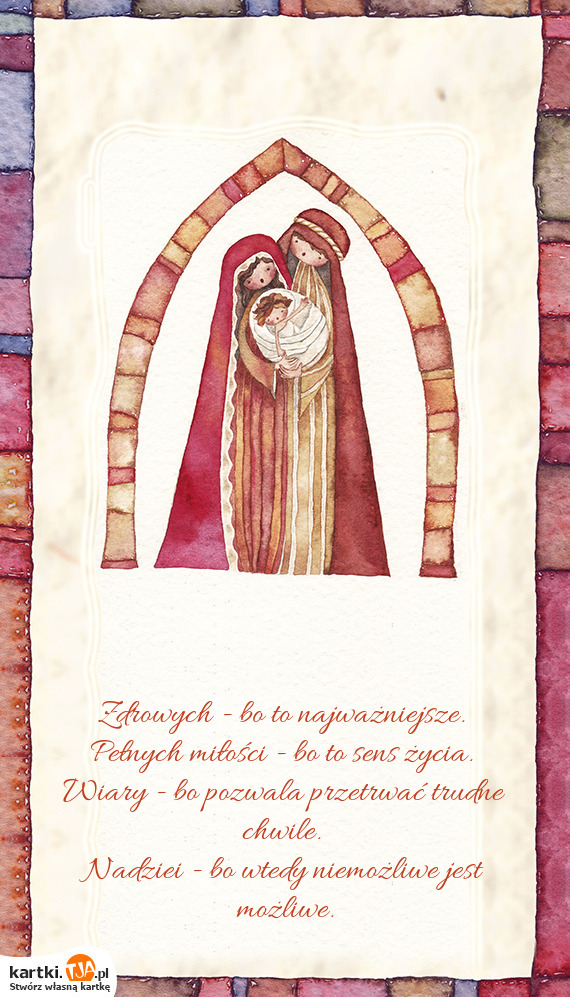 Zdrowych - bo to najważniejsze.
Pełnych miłości - bo to sens życia.
Wiary - bo pozwala przetrwać trudne
chwile.
Nadziei - bo wtedy niemożliwe jest
możliwe.
kartki.TJA.pl
Stwórz własną kartkę